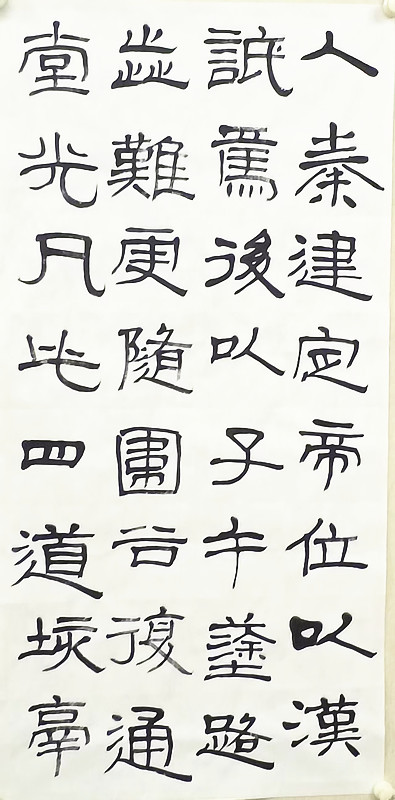 入秦建定帝位以漢
詆焉後以子午塗路
歰難更隨圍谷復通
堂光凡此四道垓鬲